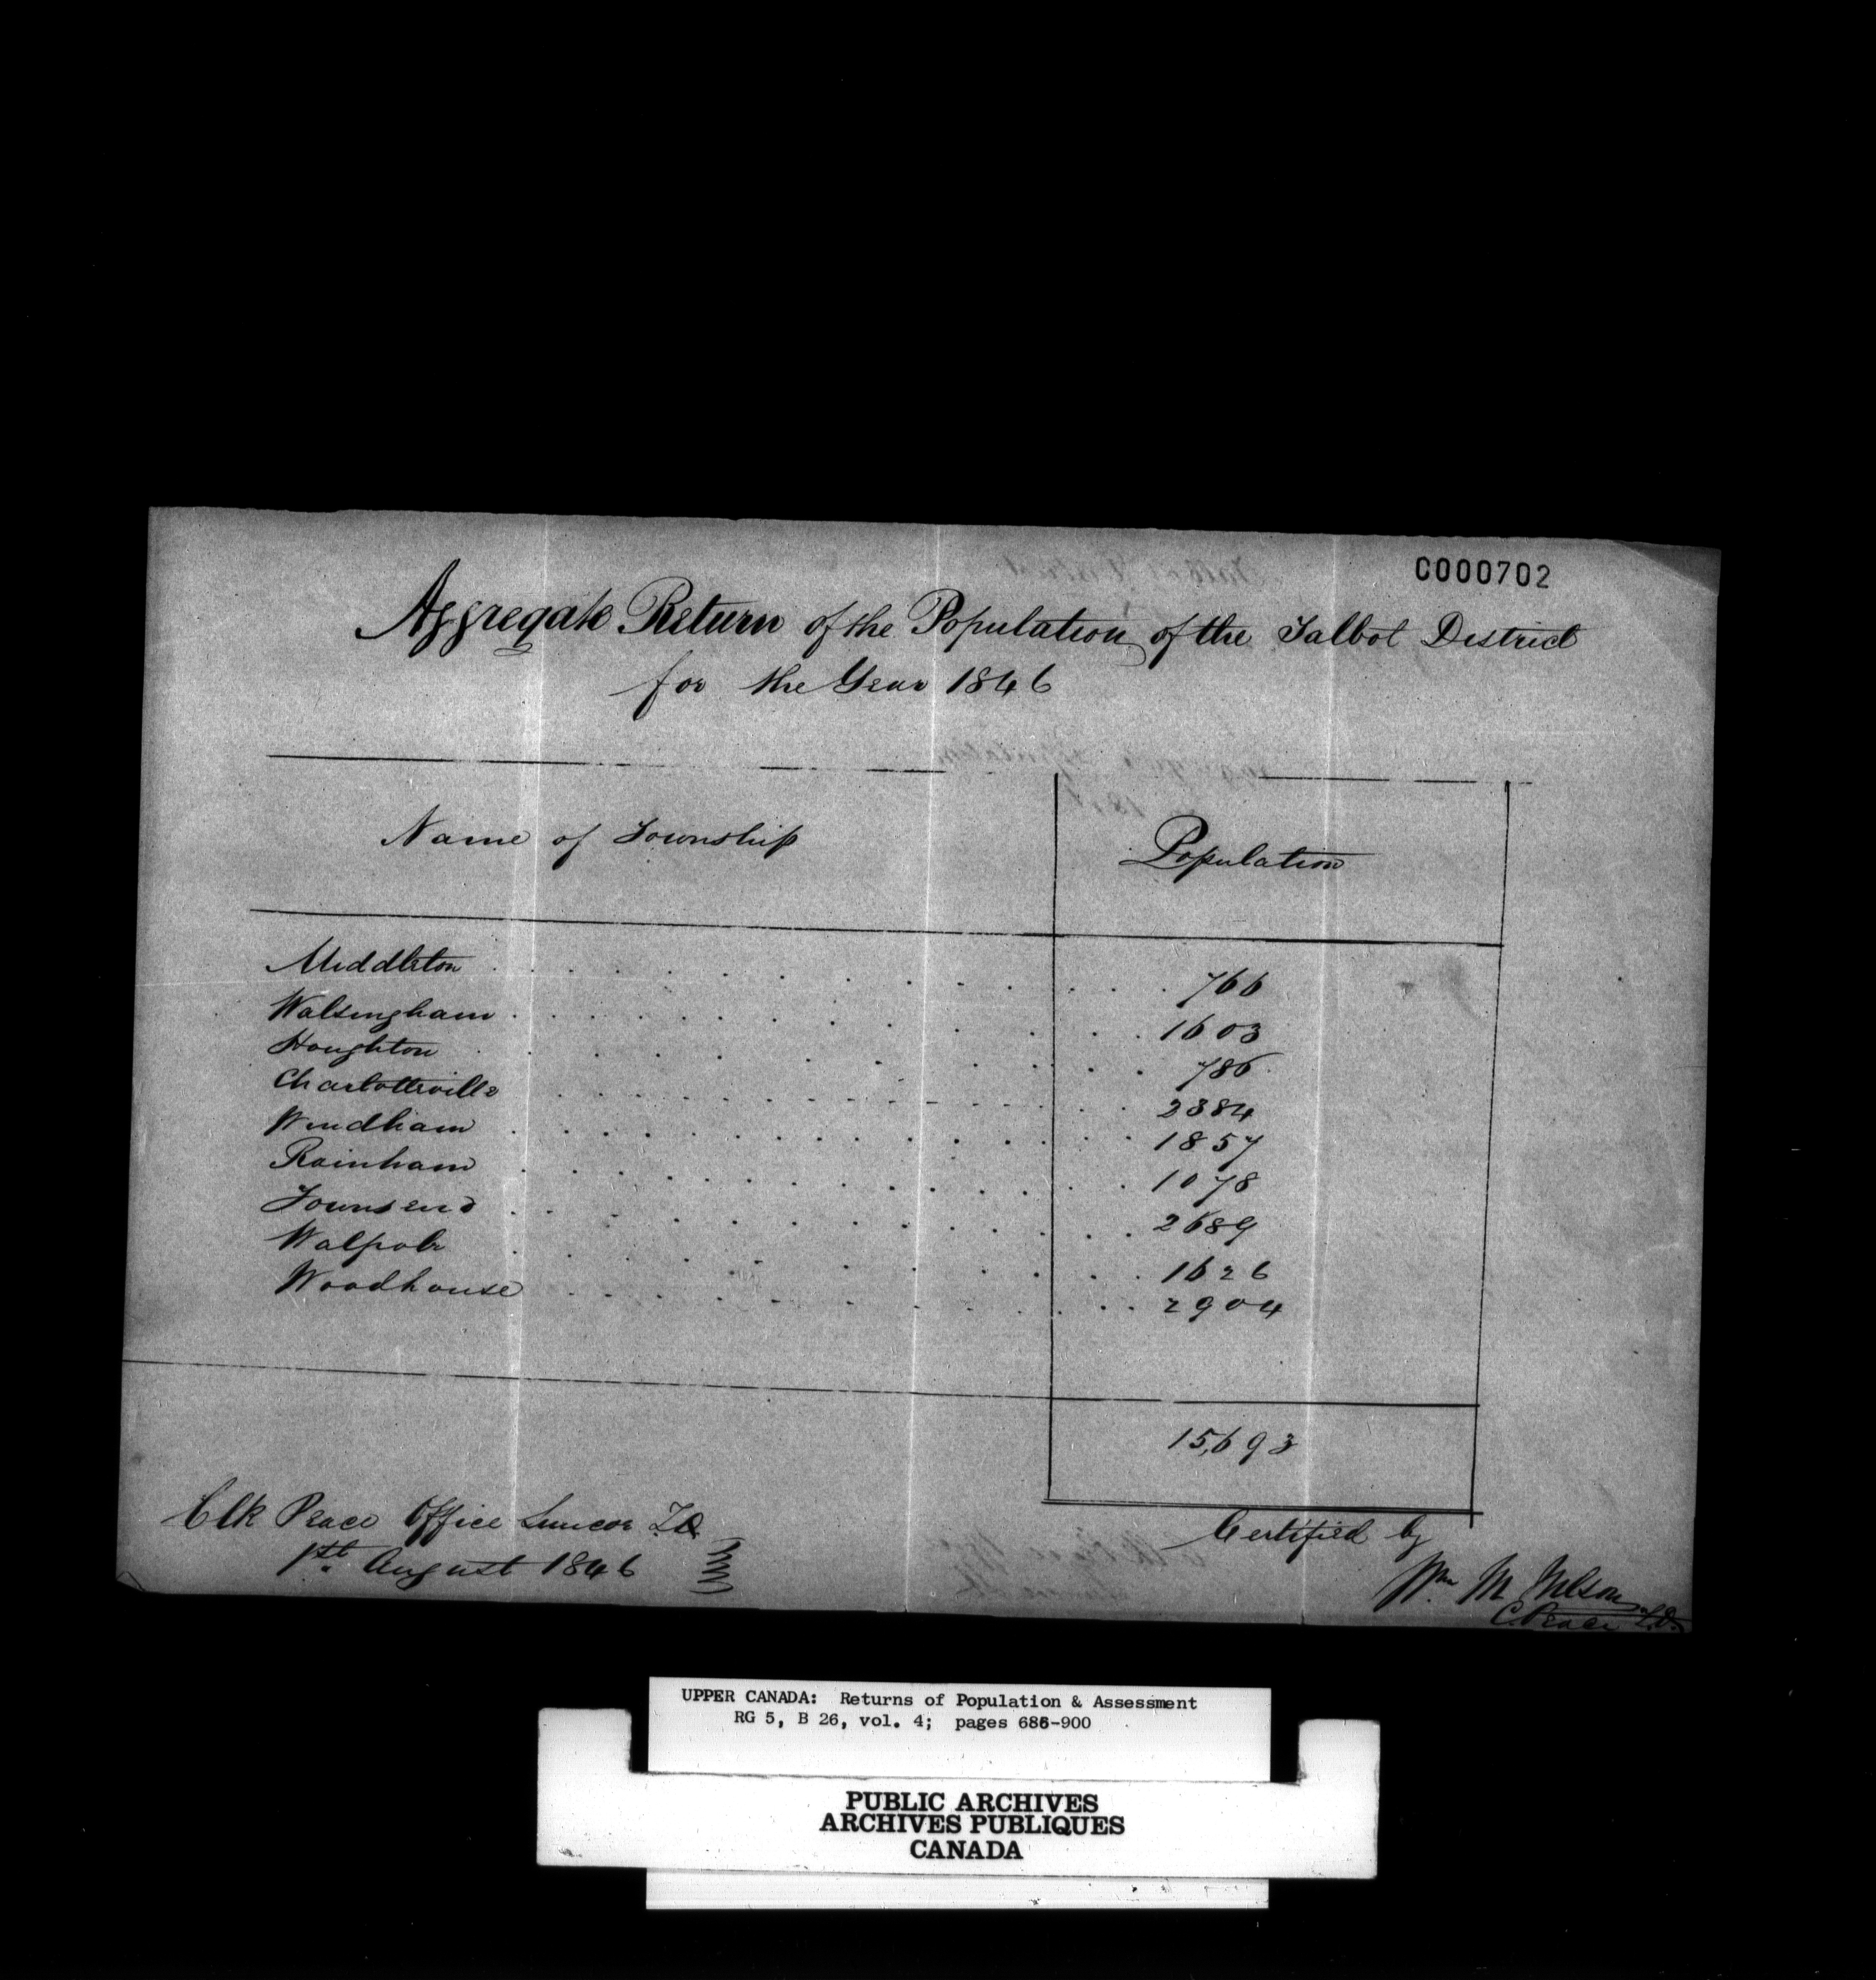 C000702
Aggregate Return of the Population of the Talbot District
for the Year 1846
Name of Township Population
Middleton 766
Walsingham 1603
Houghton 786
Charlotteville 2384
Windham 1857
Rainham 1078
Townsend 2689
Walpole 1626
Woodhouse 2904
15,693
Clk Peace Office Simcoe T.D.
1st August 1846
Certified by
Wm M Wilson
C. Peace T.D.
UPPER CANADA: Returns of Population & Assessment
RG 5, B 26, vol. 4; pages 686-900
PUBLIC ARCHIVES
ARCHIVES PUBLIQUES
CANADA